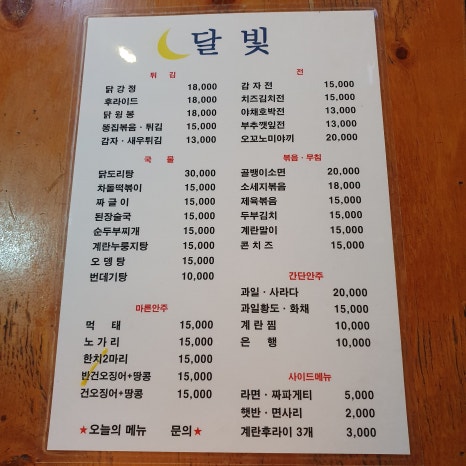 달 빛
튀 김
닭 강 정 18,000
후라이드 18,000
닭 윙 봉 18,000
똥집볶음 · 튀김 15,000
감자 · 새우튀김 13,000
전
감 자 전 15,000
치즈김치전 15,000
야채호박전 13,000
부추깻잎전 13,000
오꼬노미야끼 20,000
국 물
닭도리탕 30,000
차돌떡볶이 15,000
짜 글 이 15,000
된장술국 15,000
순두부찌개 15,000
계란누룽지탕 15,000
오 뎅 탕 15,000
번데기탕 10,000
볶음 · 무침
골뱅이소면 20,000
소세지볶음 18,000
제육볶음 15,000
두부김치 15,000
계란말이 15,000
콘 치 즈 15,000
마른안주
먹 태 15,000
노 가 리 15,000
한치2마리 15,000
반건오징어+땅콩 15,000
건오징어+땅콩 15,000
★오늘의 메뉴 문의★
간단안주
과일 · 사라다 20,000
과일황도 · 화채 15,000
계 란 찜 10,000
은 행 10,000
사이드메뉴
라면 · 짜파게티 5,000
햇반 · 면사리 2,000
계란후라이 3개 3,000